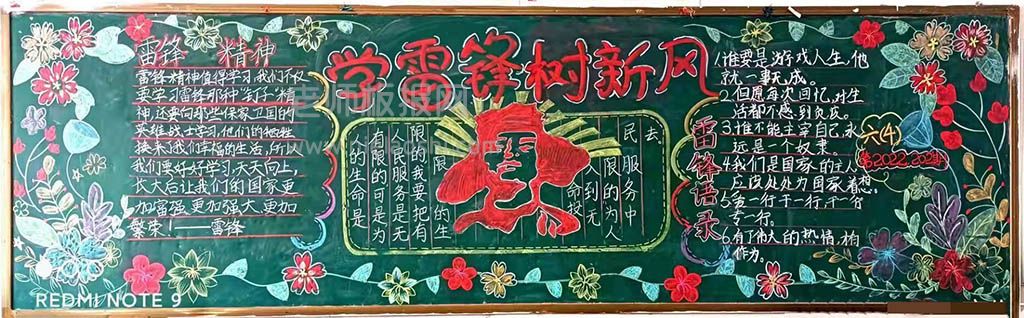 学雷锋树新风
雷锋 精神
雷锋精神值得学习,我们不仅
要学习雷锋那种"钉子"精
神,还要向那些保家卫国的
英雄战士学习,他们的牺牲
换来我们幸福的生活,所以
我们要好好学习,天天向上,
长大后让我们的国家更
加富强,更加强大,更加
繁荣!——雷锋
的生命是
有限的可是为
人民服务是无
限的我要把有
限的生
命投
入到无
限的为人
民服务中
去
雷锋语录
1.谁要是游戏人生,他
就一事无成。
2.但愿每次回忆,对生
活都不感到负疚。
3.谁不能主宰自己,永
远是一个奴隶。
4.我们是国家的主人
应该处处为国家着想
5.一行干一行
专一行。
6.有了伟人的热情,
作为。
六(4)
老师板报网
REDMI NOTE 9